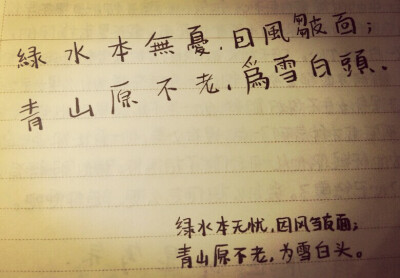 綠水本無憂，因風皺面；
青山原不老，為雪白頭．
绿水本无忧，因风皱面；
青山原不老，为雪白头。